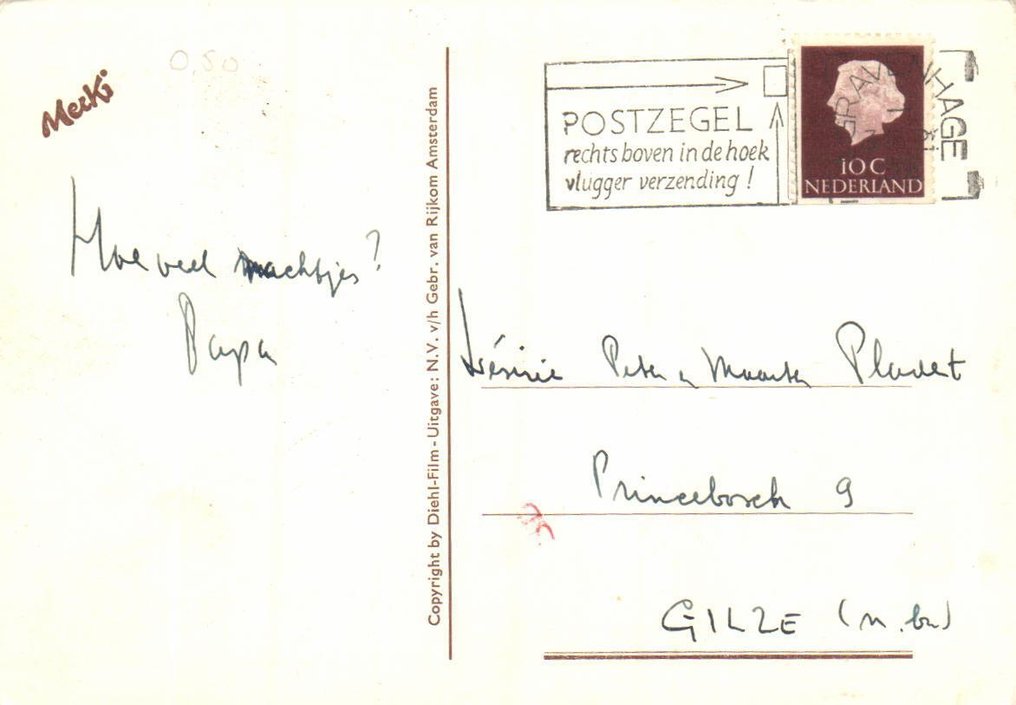 0,50
Merki
Hoeveel nachtjes?
Papa
Copyright by Diehl-Film - Uitgave: N.V. v/h Gebr. van Rijkom Amsterdam
POSTZEGEL
rechts boven in de hoek
vlugger verzending !
GRAVENHAGE
10 C
NEDERLAND
Peter Maarten
Princebosch 9
GILZE (n.br)